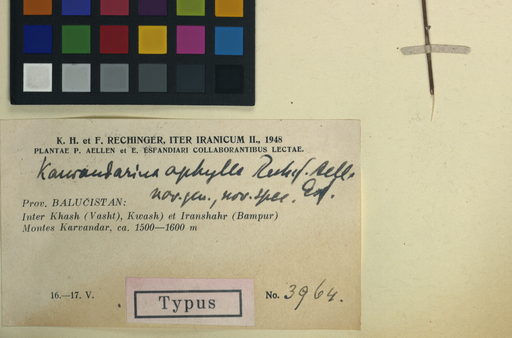 K. H. et F. RECHINGER, ITER IRANICUM II., 1948
PLANTAE P. AELLEN et E. ESFANDIARI COLLABORANTIBUS LECTAE.
Karvandarina aphylla Rech.f. Aell.
nov. gen., nov. spec. Esf.
Prov. BALUCISTAN:
Inter Khash (Vasht), Kwash) et Iranshahr (Bampur)
Montes Karvandar, ca. 1500—1600 m
16.—17. V.
Typus
No. 3964.